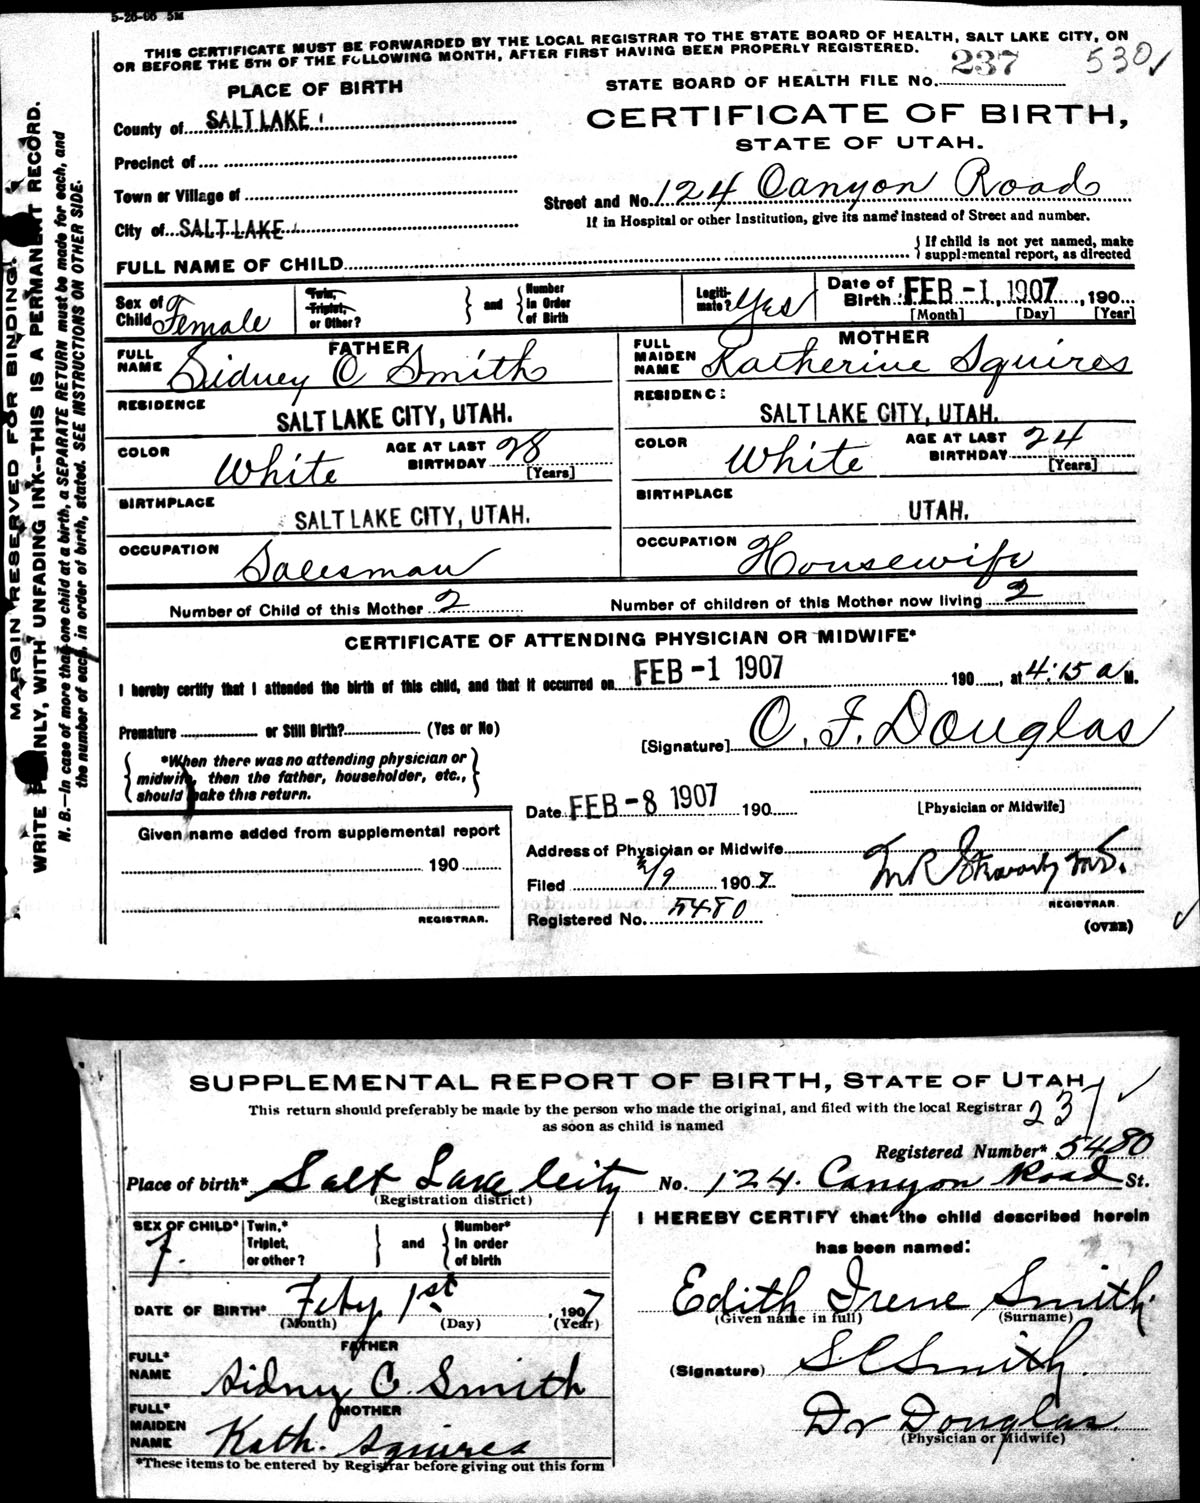 5-26-06 5M
THIS CERTIFICATE MUST BE FORWARDED BY THE LOCAL REGISTRAR TO THE STATE BOARD OF HEALTH, SALT LAKE CITY, ON
OR BEFORE THE 5TH OF THE FOLLOWING MONTH, AFTER FIRST HAVING BEEN PROPERLY REGISTERED.
530
STATE BOARD OF HEALTH FILE No. 237
PLACE OF BIRTH
CERTIFICATE OF BIRTH,
STATE OF UTAH.
County of SALT LAKE
Precinct of
Town or Village of
City of SALT LAKE
Street and No. 124 Canyon Road
If in Hospital or other Institution, give its name instead of Street and number.
FULL NAME OF CHILD
If child is not yet named, make
supplemental report, as directed
Sex of Child Female
Twin, Triplet, or Other?
and
Number in Order of Birth
Legitimate? Yes
Date of Birth FEB -1 1907, 190
[Month] [Day] [Year]
FATHER
FULL NAME Sidney C Smith
RESIDENCE SALT LAKE CITY, UTAH.
COLOR White
AGE AT LAST BIRTHDAY 28 [Years]
BIRTHPLACE SALT LAKE CITY, UTAH.
OCCUPATION Salesman
MOTHER
FULL MAIDEN NAME Katherine Squires
RESIDENC: SALT LAKE CITY, UTAH.
COLOR White
AGE AT LAST BIRTHDAY 24 [Years]
BIRTHPLACE UTAH.
OCCUPATION Housewife
Number of Child of this Mother 2
Number of children of this Mother now living 2
CERTIFICATE OF ATTENDING PHYSICIAN OR MIDWIFE*
I hereby certify that I attended the birth of this child, and that it occurred on FEB -1 1907 190, at 4:15 a M.
Premature or Still Birth? (Yes or No)
[Signature] C. F. Douglas
*When there was no attending physician or
midwife, then the father, householder, etc.,
should make this return.
Date FEB -8 1907 190
[Physician or Midwife]
Given name added from supplemental report
190
REGISTRAR.
Address of Physician or Midwife
Filed 2/9 1907
REGISTRAR.
Registered No. 5480
(OVER)
MARGIN RESERVED FOR BINDING.
WRITE PLAINLY, WITH UNFADING INK--THIS IS A PERMANENT RECORD.
N. B.—In case of more than one child at a birth, a SEPARATE RETURN must be made for each, and
the number of each, in order of birth, stated. SEE INSTRUCTIONS ON OTHER SIDE.
SUPPLEMENTAL REPORT OF BIRTH, STATE OF UTAH
This return should preferably be made by the person who made the original, and filed with the local Registrar
as soon as child is named
237
Registered Number* 5480
Place of birth* Salt Lake City No. 124. Canyon Road St.
(Registration district)
SEX OF CHILD* f.
Twin,* Triplet, or other?
and
Number* In order of birth
DATE OF BIRTH* Feby 1st, 1907
(Month) (Day) (Year)
FATHER
FULL* NAME Sidney C. Smith
MOTHER
FULL* MAIDEN NAME Kath. Squires
*These items to be entered by Registrar before giving out this form
I HEREBY CERTIFY that the child described herein
has been named:
Edith Irene Smith
(Given name in full) (Surname)
(Signature) S C Smith
Dr Douglas
(Physician or Midwife)